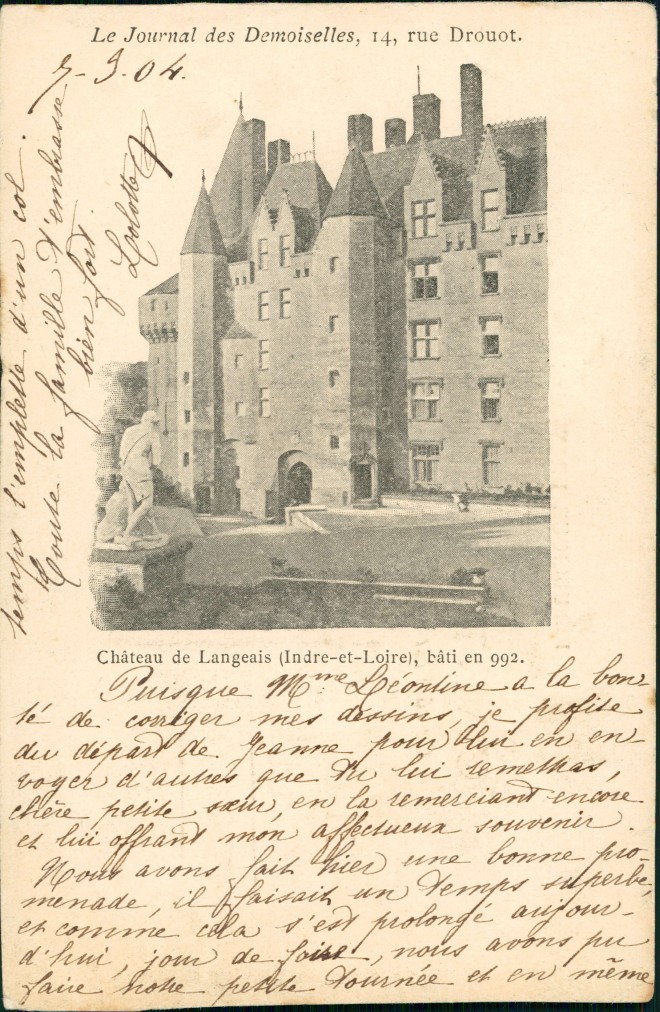 Le Journal des Demoiselles, 14, rue Drouot.
7-9-04.
Château de Langeais (Indre-et-Loire), bâti en 992.
Puisque Mme Léontine a la bon-
té de corriger mes dessins, je profite
du départ de Jeanne pour lui en en-
voyer d'autres que tu lui remettras,
chère petite sœur, en la remerciant encore
et lui offrant mon affectueux souvenir.
Nous avons fait hier une bonne pro-
menade, il faisait un temps superbe,
et comme cela s'est prolongé aujour-
d'hui, jour de foire, nous avons pu
faire notre petite tournée et en même
temps l'emplette d'un col.
Toute la famille t'embrasse
bien fort.
Lolotte